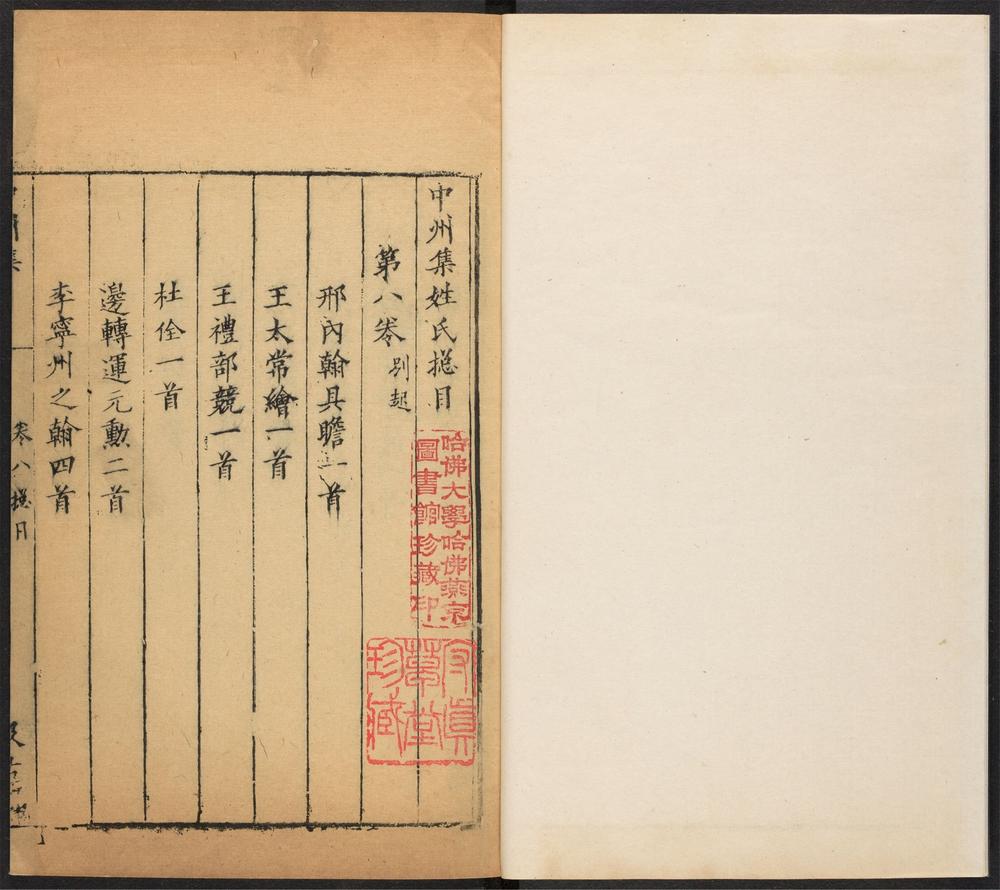 中州集姓氏揔目
第八卷 别起
邢內翰具瞻一首
王太常繪一首
王禮部競一首
杜佺一首
邊轉運元勳二首
李寧州之翰四首
中州集
卷八揔目
哈佛大學哈佛燕京
圖書館珍藏印
草堂
珍藏